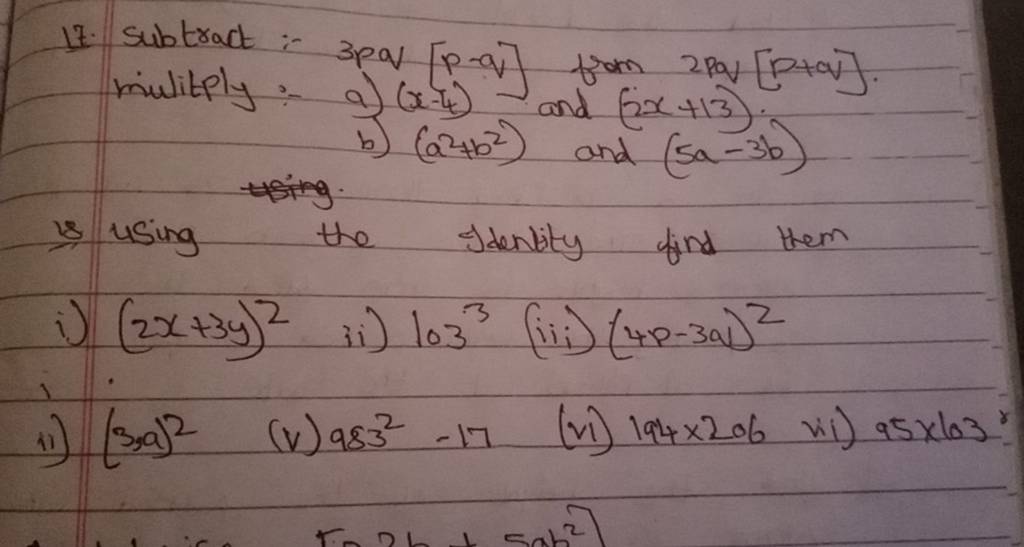 17. Subtract :- 3pq [p-q] from 2pq [p+q].
mulitply :- a) (x-4) and (2x+13).
b) (a²+b²) and (5a-3b)
using.
18 using the Identity find them
i) (2x+3y)² ii) 103³ (iii) (4p-3q)²
(v) 983² -17 (vi) 194x206 vii) 95x103
5ab²]